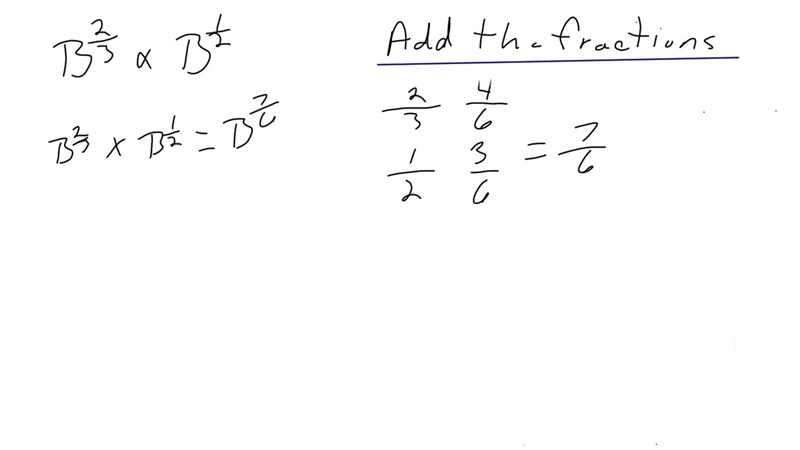 B^(2/3) x B^(1/2)
B^(2/3) x B^(1/2) = B^(7/6)
Add the fractions
2/3 4/6
1/2 3/6 = 7/6